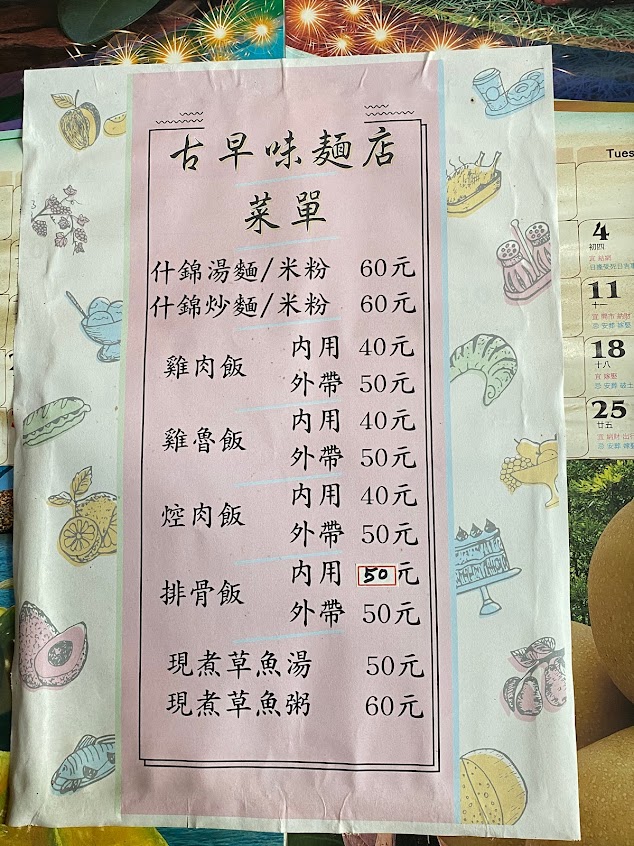 古早味麵店
菜單
什錦湯麵/米粉 60元
什錦炒麵/米粉 60元
雞肉飯 內用 40元
外帶 50元
雞魯飯 內用 40元
外帶 50元
焢肉飯 內用 40元
外帶 50元
排骨飯 內用 50元
外帶 50元
現煮草魚湯 50元
現煮草魚粥 60元
Tues
4
初四
11
十一
18
十八
25
廿五